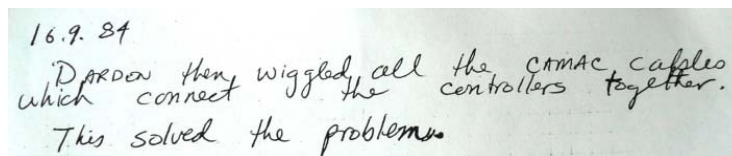 16.9.84
DARDEN then wiggled all the CAMAC cables
which connect the controllers together.
This solved the problem.